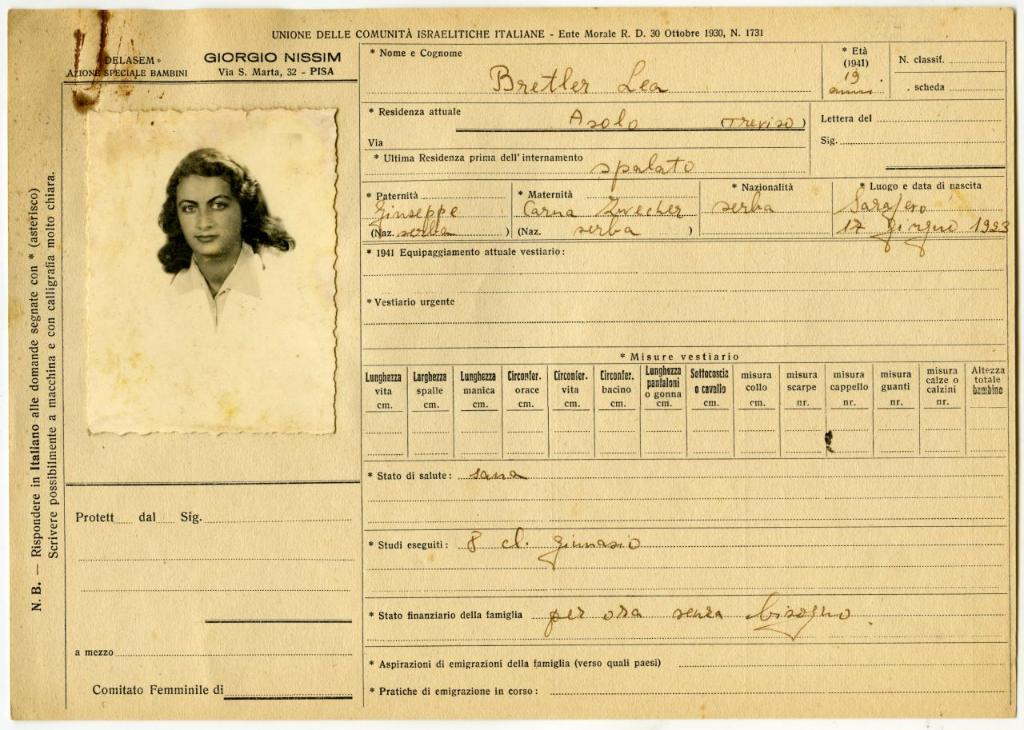 UNIONE DELLE COMUNITÀ ISRAELITICHE ITALIANE - Ente Morale R. D. 30 Ottobre 1930, N. 1731
"DELASEM"
AZIONE SPECIALE BAMBINI
GIORGIO NISSIM
Via S. Marta, 32 - PISA
* Nome e Cognome
Bretler Lea
* Età
(1941)
19
anni
N. classif.
. scheda
* Residenza attuale
Asolo (Treviso)
Via
Lettera del
Sig.
* Ultima Residenza prima dell'internamento
spalato
* Paternità
Giuseppe
(Naz. serba )
* Maternità
Carna
(Naz. serba )
* Nazionalità
serba
* Luogo e data di nascita
Sarajevo
17 giugno 1923
* 1941 Equipaggiamento attuale vestiario:
* Vestiario urgente
* Misure vestiario
Lunghezza vita cm.
Larghezza spalle cm.
Lunghezza manica cm.
Circonfer. orace cm.
Circonfer. vita cm.
Circonfer. bacino cm.
Lunghezza pantaloni o gonna cm.
Sottocoscia o cavallo cm.
misura collo cm.
misura scarpe nr.
misura cappello nr.
misura guanti nr.
misura calze o calzini nr.
Altezza totale bambino
* Stato di salute: sana
* Studi eseguiti: 8 cl. ginnasio
* Stato finanziario della famiglia per ora senza bisogno.
* Aspirazioni di emigrazioni della famiglia (verso quali paesi)
* Pratiche di emigrazione in corso:
Protett dal Sig.
a mezzo
Comitato Femminile di
N. B. — Rispondere in Italiano alle domande segnate con * (asterisco)
Scrivere possibilmente a macchina e con calligrafia molto chiara.